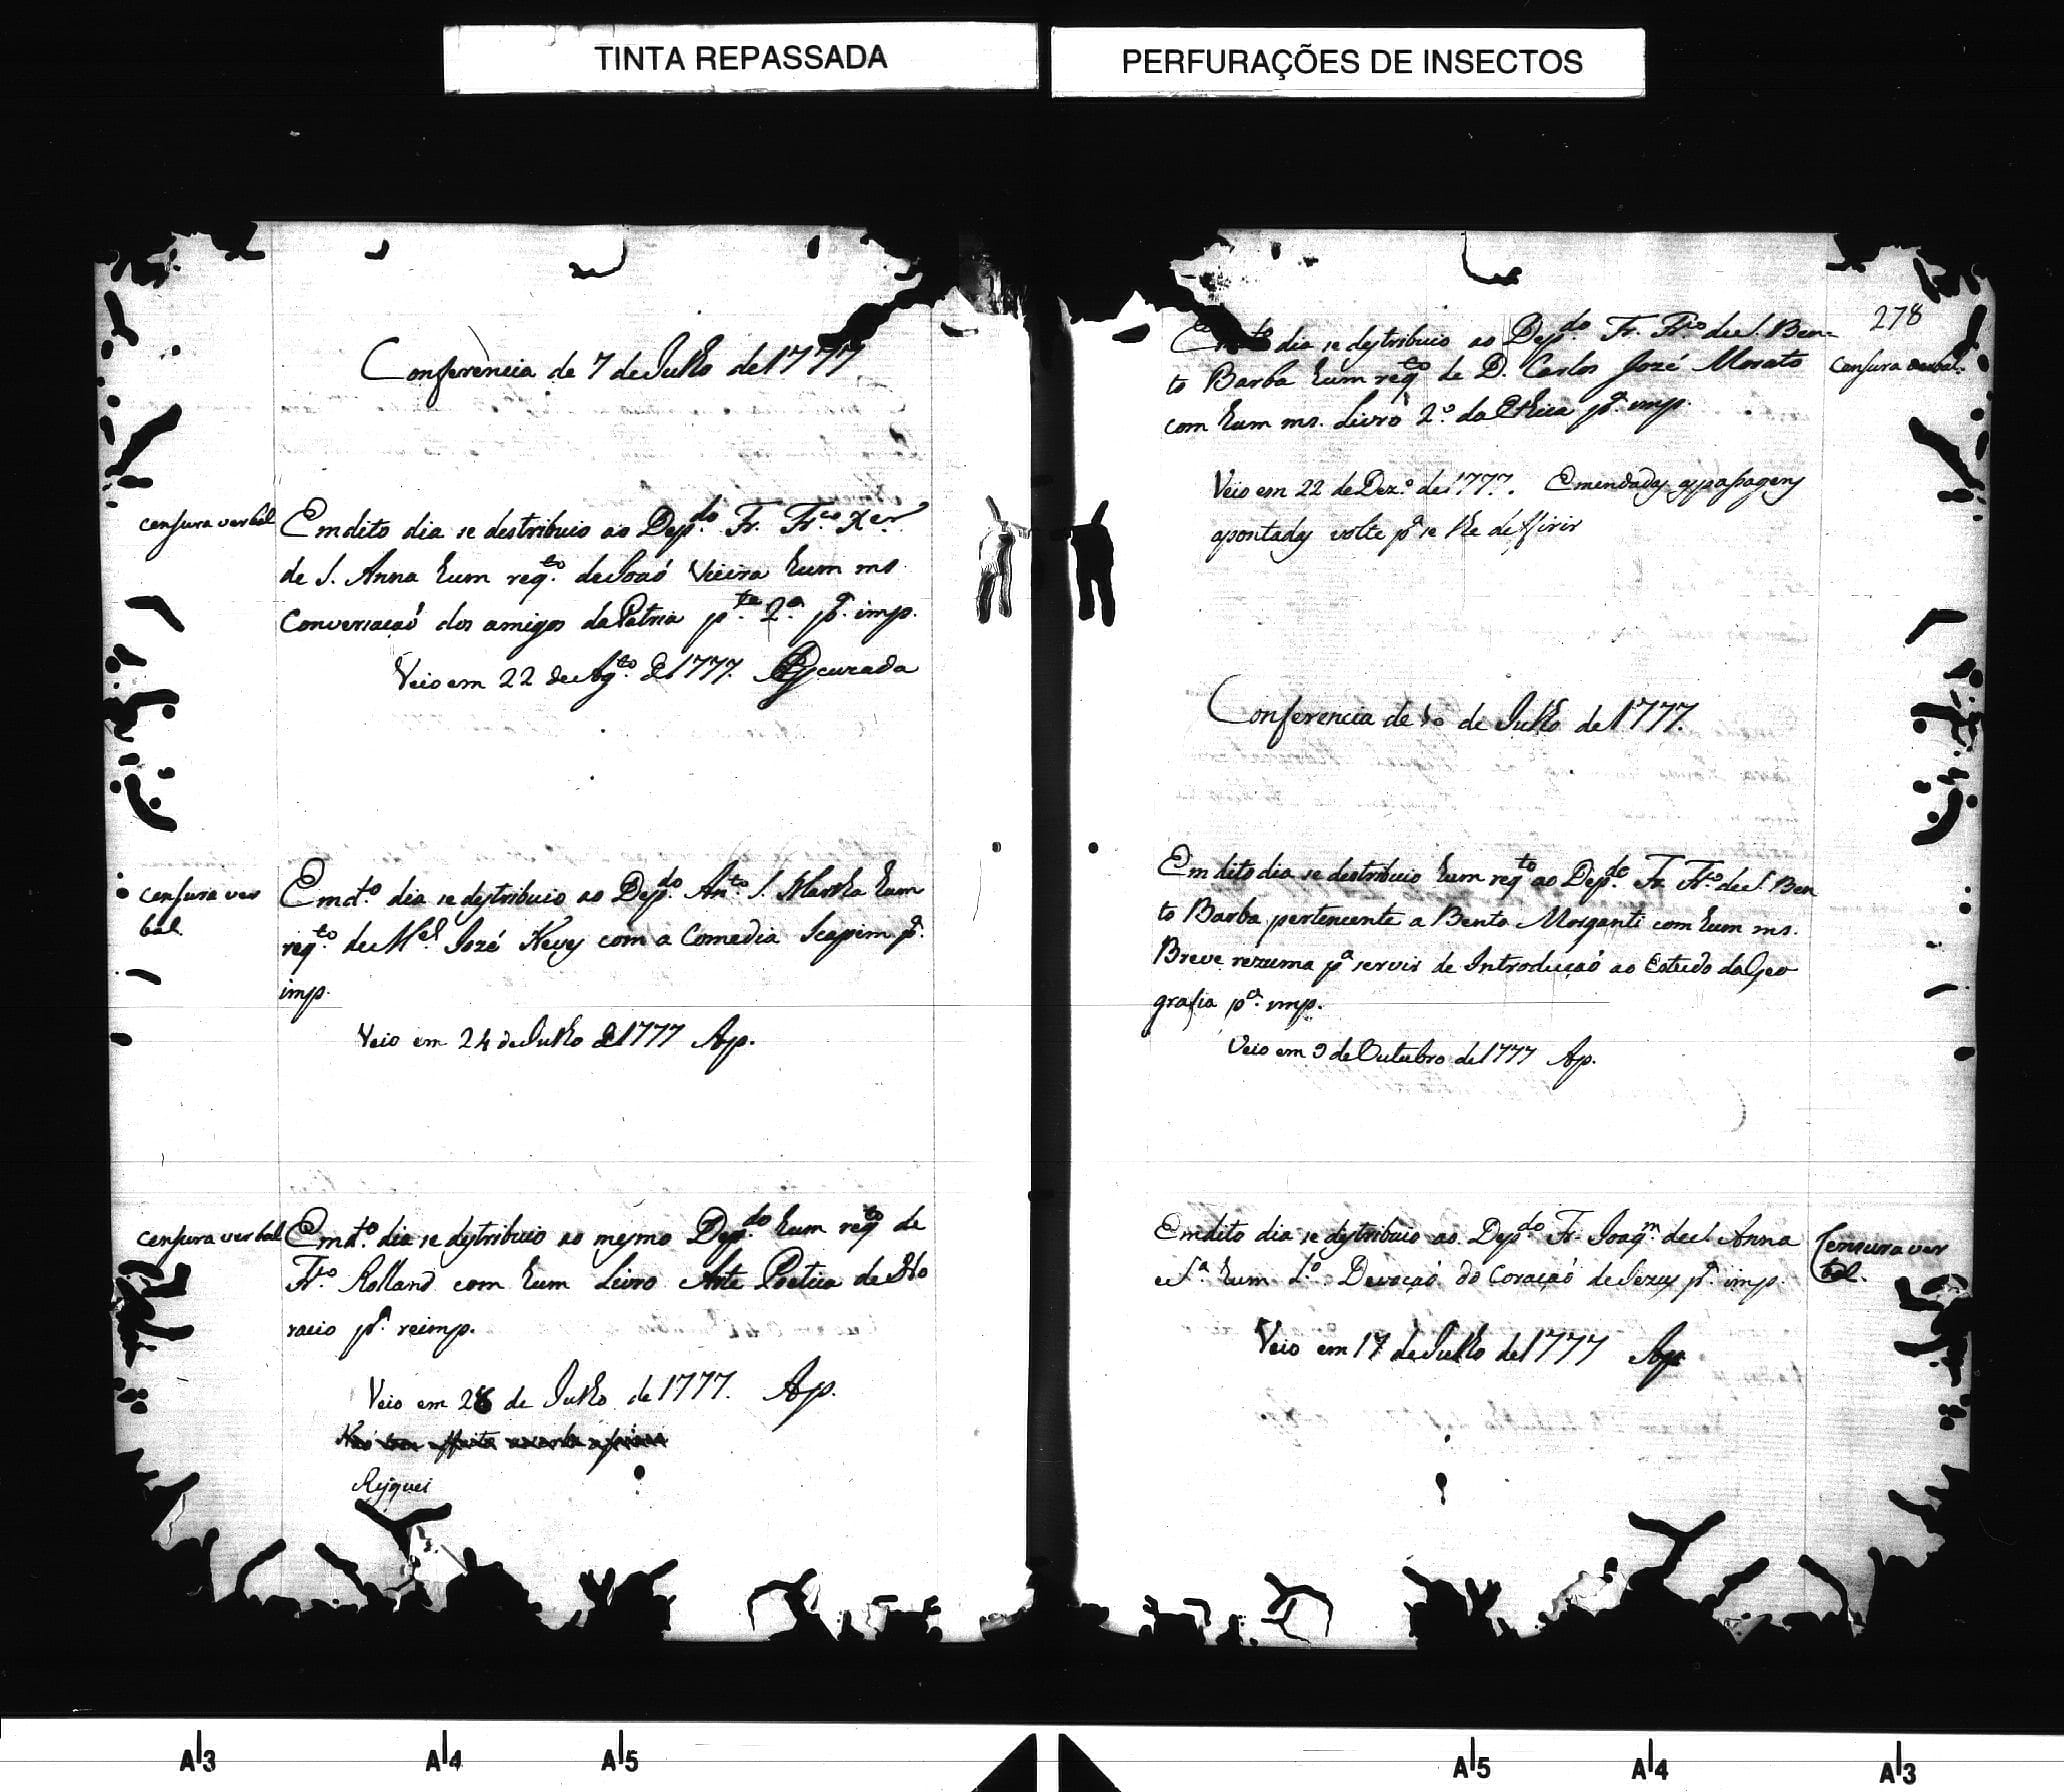 TINTA REPASSADA
PERFURAÇÕES DE INSECTOS
Conferencia de 7 de Julho de 1777
censura verbal
Em dito dia se destribuio ao Depdo. Fr. Frco. Xer.
de S. Anna hum reqto. de Joaó Vieira hum ms.
Conversaçaó dos amigos da Patria pte. 2a. pa. imp.
Veio em 22 de Agto. de 1777. Escuzada
censura ver
bal
Em dto. dia se destribuio ao Depdo. Anto. S. Martha hum
reqto. de Mel. Jozé Nevy com a Comedia Scapim pa.
imp.
Veio em 24 de Julho de 1777 Ap.
censura verbal
Em dto. dia se destribuio ao mesmo Depdo. hum reqto. de
Frco. Rolland com hum Livro Arte Poetica de Ho
racio pa. reimp.
Veio em 28 de Julho de 1777. Ap.
Risquei
278
Em dto. dia se destribuio ao Depdo. Fr. Frco. de S. Ben-
to Barba hum reqto. de D. Carlos Jozé Morato
com hum ms. Livro 2o. da Ethica pa. imp.
censura verbal.
Veio em 22 de Dezo. de 1777. Emendadas as passagens
apontadas volte pa. se lhe deffirir
Conferencia de 10 de Julho de 1777.
Em dito dia se destribuio hum reqto. ao Depdo. Fr. Frco. de S. Ben
to Barba pertencente a Bento Morganti com hum ms.
Breve rezumo pa. servir de Introduçaó ao Estudo da Geo
grafia pa. imp.
Veio em 9 de Outubro de 1777 Ap.
Em dito dia se destribuio ao Depdo. Fr. Joaqm. de S. Anna
e Sa. hum Lo. Devoçaó do Coraçaó de Jezus pa. imp.
Censura ver
bal.
Veio em 17 de Julho de 1777 Ap.
A3
A4
A5
A5
A4
A3